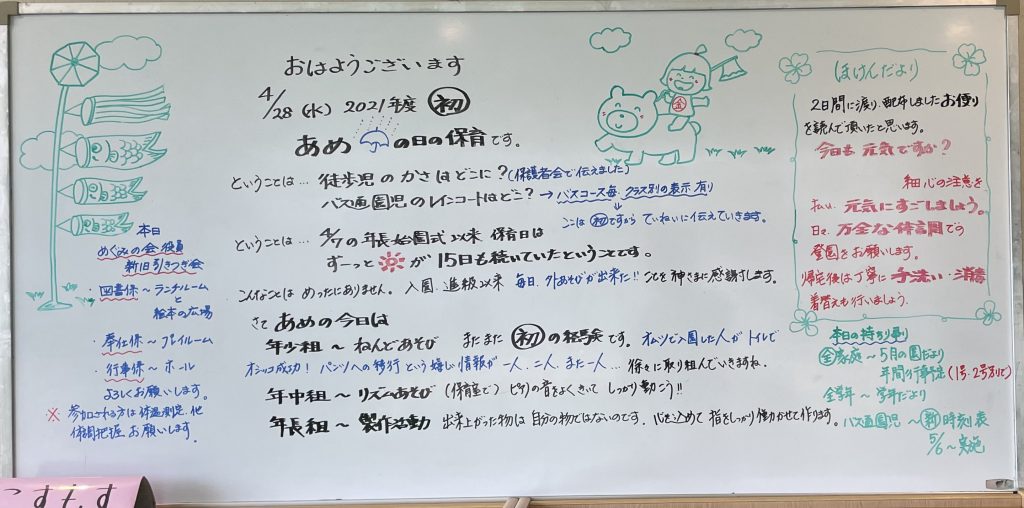 おはようございます
4/28 (水) 2021年度 初
あめ の日の保育です。
ということは… 徒歩児のかさはどこに？(保護者会で伝えました)
バス通園児のレインコートはどこ？→バスコース毎、クラス別の表示有り
ここは初ですから ていねいに伝えていきます。
ということは… 4/7の年長始園式以来 保育日は
ずーっと が 15日も続いていたということです。
こんなことは めったにありません。入園、進級以来 毎日、外あそびが出来た!! ことを神さまに感謝します。
さて あめの今日は
年少組～ねんどあそび またまた 初 の経験です。オムツで入園した人がトイレで
オシッコ成功！パンツへの移行という嬉しい情報が一人、二人、また一人… 徐々に取り組んでいきますね。
年中組～リズムあそび (保育室で) ピアノの音をよくきいて しっかり動こう!!
年長組～製作活動 出来上がった物は 自分の物ではないのです。心を込めて 指をしっかり働かせて作ります。
本日
めぐみの会役員
新旧引きつぎ会
・図書係～ランチルーム
と
絵本の広場
・奉仕係～プレイルーム
・行事係～ホール
よろしくお願いします。
※ 参加される方は体温測定、他
体調把握お願いします。
金
ほけんだより
2日間に渡り、配布しましたお便り
を読んで頂いたと思います。
今日も 元気ですか？
細心の注意を
払い、元気にすごしましょう。
万全な体調で
登園をお願いします。
帰宅後は丁寧に手洗い・消毒
着替えも行いましょう。
本日の持ち帰り
全家庭～5月の園だより
年間行事予定(1号・2号別にて)
全学年～学年だより
バス通園児～新時刻表
5/6～実施
こすもす